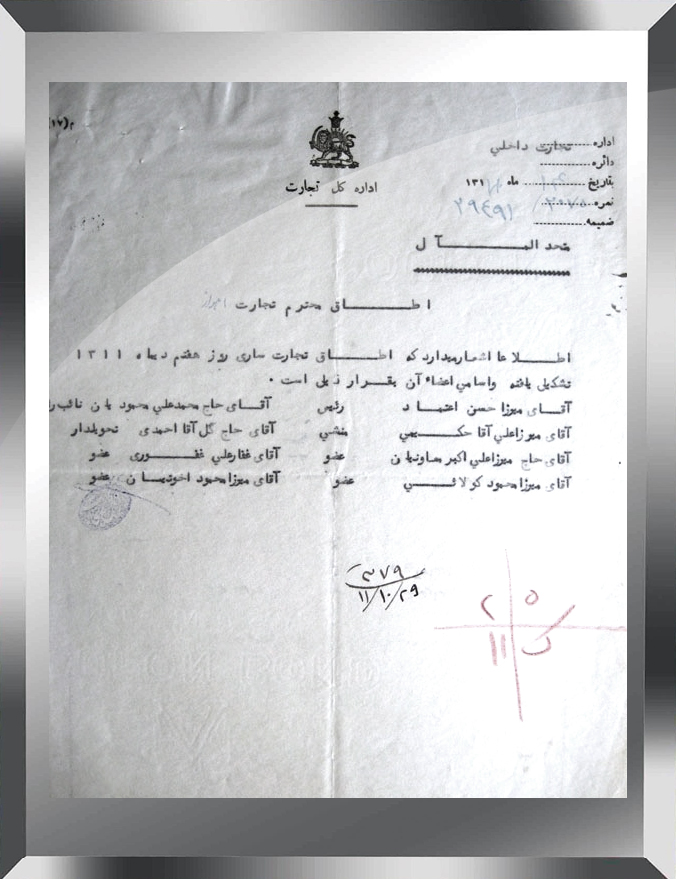 م(۱۷)
اداره کل تجارت
اداره تجارت داخلي
دائره
بتاریخ ماه ۱۳۱
نمره ۲۹۴۹۱
ضمیمه
متحد المـــآل
اطـــاق محترم تجارت اهواز
اطـــلاعا اشعارمیدارد که اطـــاق تجارت ساری روز هفتم دیماه ۱۳۱۱
تشکیل یافته واسامي اعضاء آن بقـــرار ذیل است .
آقـــای میرزا حسن اعتمـــاد رئیس آقـــای حاج محمدعلي محمودیان نائب ر
آقای میرزاعلي آقا حکـــیمي منشي آقای حاج گل آقا احمدی تحویلدار
آقای حاج میرزاعلي اکبر ساونیان عضو آقای غفارعلي غفـــوری عضو
آقای میرزا محمود کولائـــي عضو آقای میرزا محمود اخوتیـــان عضو
۳۷۹
۱۱/۱۰/۲۹
۲ ۵
۱۱ ک